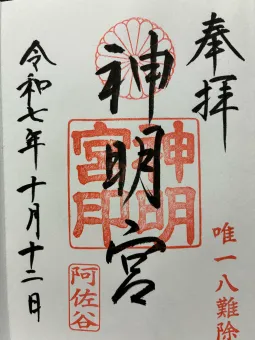 奉拝
唯一八難除
神明宮
神明
宮印
阿佐谷
令和七年十月十二日